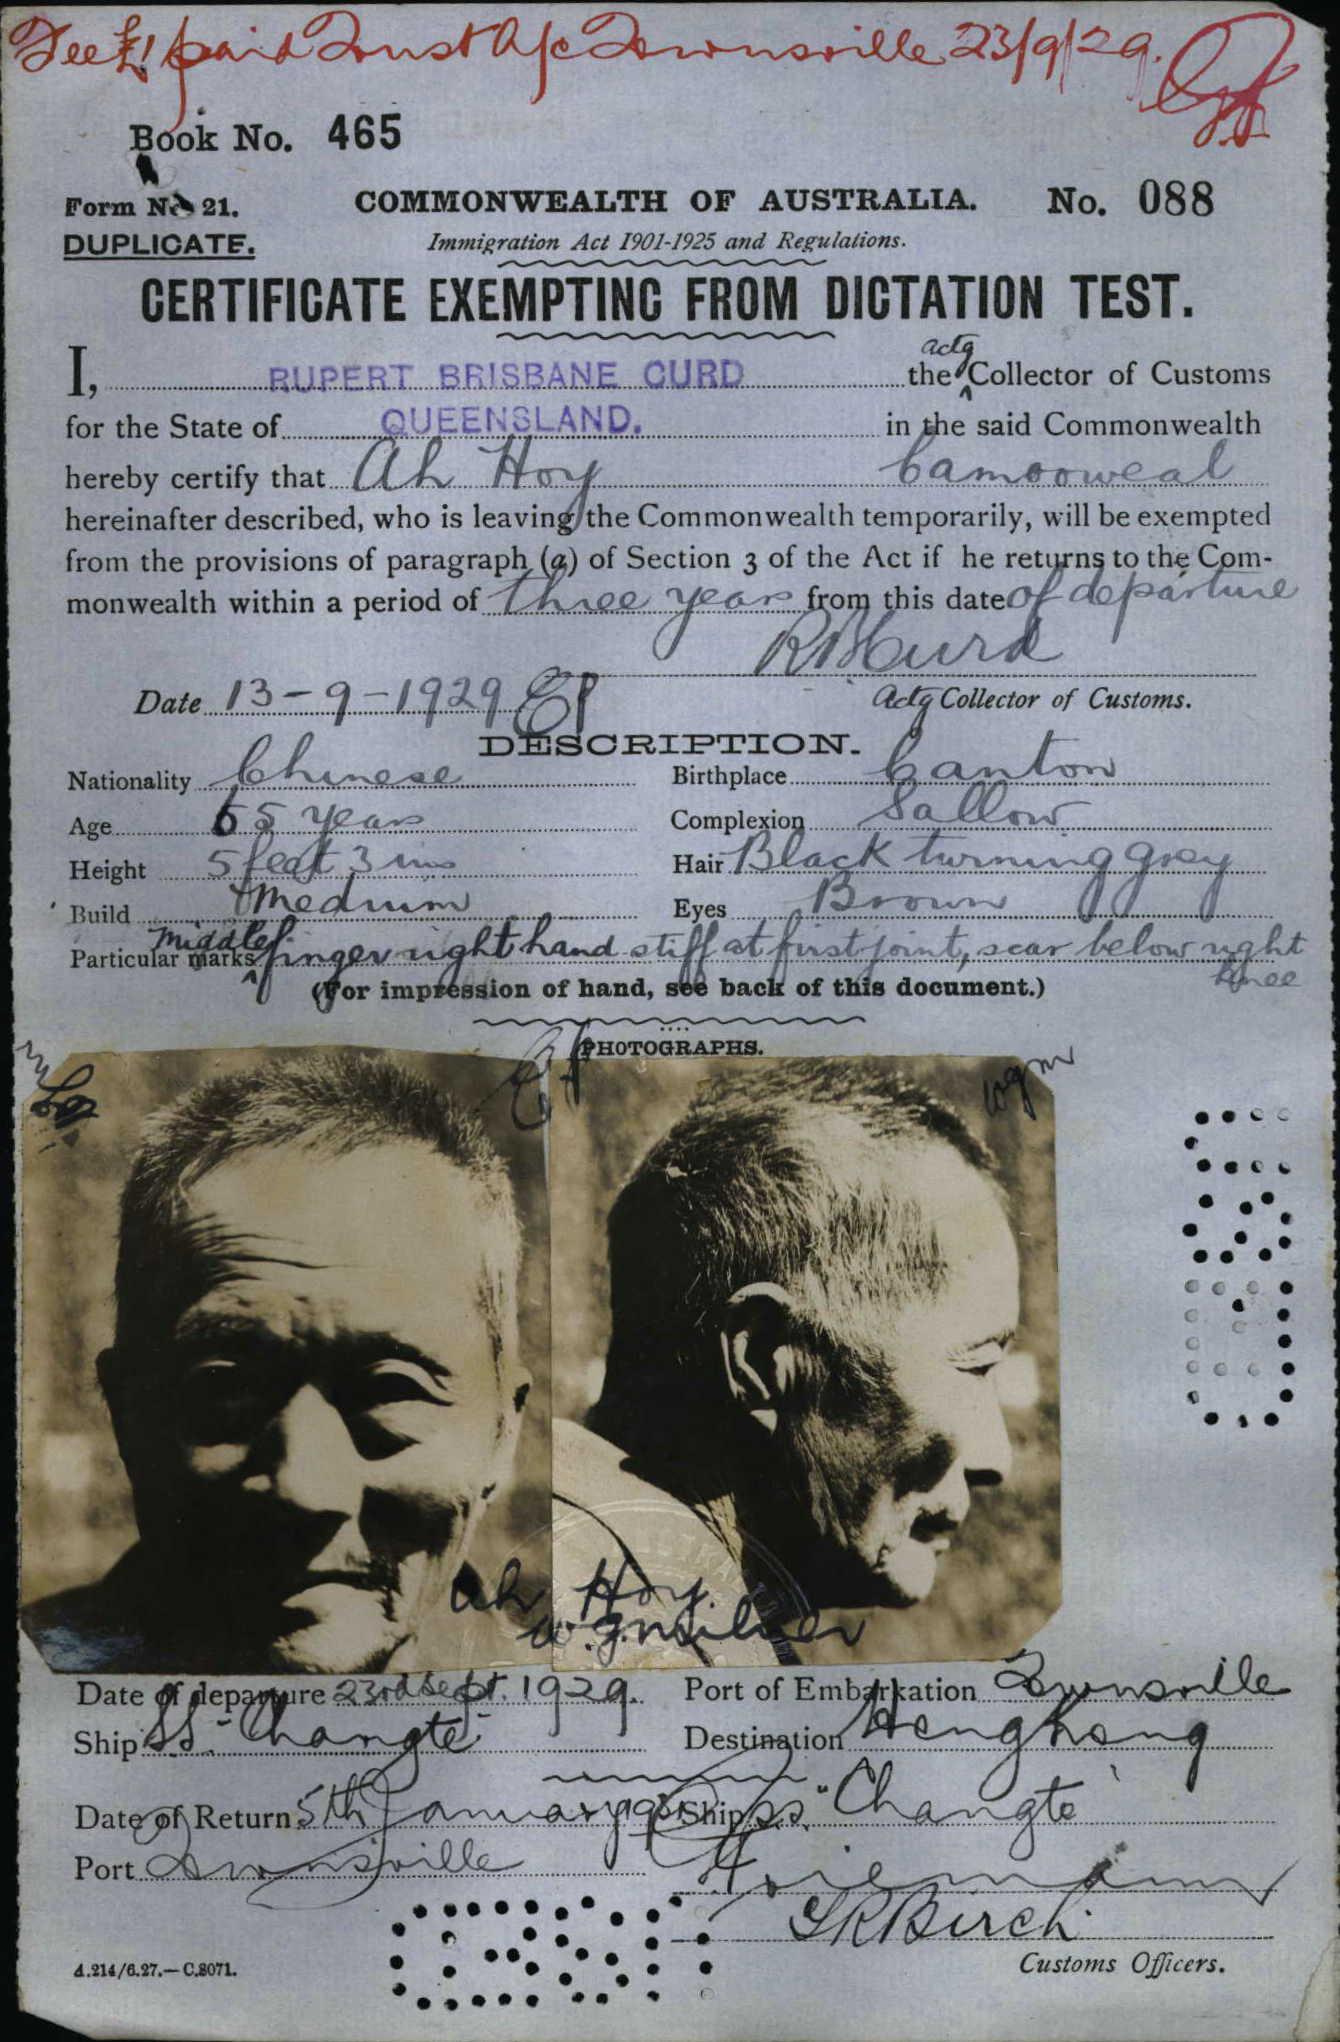 Fee £1 paid Trust A/c Townsville 23/9/29.
Book No. 465
Form No 21. COMMONWEALTH OF AUSTRALIA. No. 088
DUPLICATE. Immigration Act 1901-1925 and Regulations.
CERTIFICATE EXEMPTING FROM DICTATION TEST.
I, RUPERT BRISBANE CURD the actg Collector of Customs
for the State of QUEENSLAND. in the said Commonwealth
hereby certify that Ah Hoy Camooweal
hereinafter described, who is leaving the Commonwealth temporarily, will be exempted
from the provisions of paragraph (a) of Section 3 of the Act if he returns to the Com-
monwealth within a period of three years from this date of departure
RBCurd
Date 13-9-1929 Actg Collector of Customs.
DESCRIPTION.
Nationality Chinese Birthplace Canton
Age 65 years Complexion Sallow
Height 5 feet 3 ins Hair Black turning grey
Build Medium Eyes Brown
Particular marks middle finger right hand stiff at first joint, scar below right
knee
(For impression of hand, see back of this document.)
PHOTOGRAPHS.
wgm
Ah Hoy
W.G. Milner
Date of departure 23rd Sept. 1929. Port of Embarkation Townsville
Ship SS "Changte" Destination Hong Kong
Date of Return 5th January 1931 Ship S.S. "Changte"
Port Townsville
Birch
A.214/6.27.—C.8071. Customs Officers.